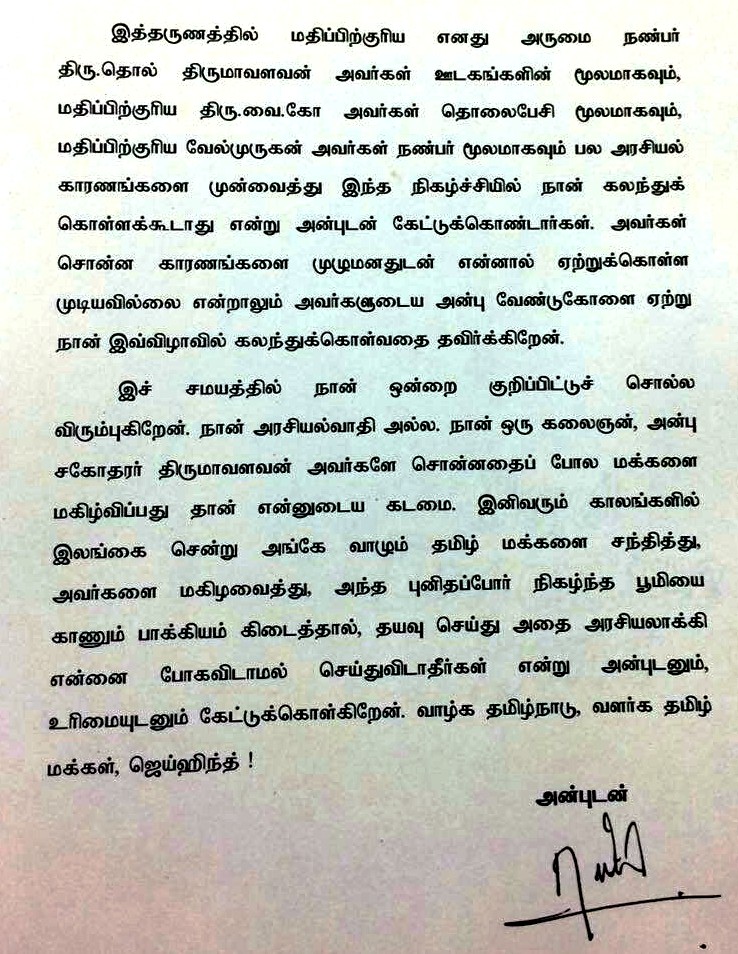 இத்தருணத்தில் மதிப்பிற்குரிய எனது அருமை நண்பர்
திரு.தொல் திருமாவளவன் அவர்கள் ஊடகங்களின் மூலமாகவும்,
மதிப்பிற்குரிய திரு.வை.கோ அவர்கள் தொலைபேசி மூலமாகவும்,
மதிப்பிற்குரிய வேல்முருகன் அவர்கள் நண்பர் மூலமாகவும் பல அரசியல்
காரணங்களை முன்வைத்து இந்த நிகழ்ச்சியில் நான் கலந்துக்
கொள்ளக்கூடாது என்று அன்புடன் கேட்டுக்கொண்டார்கள். அவர்கள்
சொன்ன காரணங்களை முழுமனதுடன் என்னால் ஏற்றுக்கொள்ள
முடியவில்லை என்றாலும் அவர்களுடைய அன்பு வேண்டுகோளை ஏற்று
நான் இவ்விழாவில் கலந்துக்கொள்வதை தவிர்க்கிறேன்.
இச் சமயத்தில் நான் ஒன்றை குறிப்பிட்டுச் சொல்ல
விரும்புகிறேன். நான் அரசியல்வாதி அல்ல. நான் ஒரு கலைஞன், அன்பு
சகோதரர் திருமாவளவன் அவர்களே சொன்னதைப் போல மக்களை
மகிழ்விப்பது தான் என்னுடைய கடமை. இனிவரும் காலங்களில்
இலங்கை சென்று அங்கே வாழும் தமிழ் மக்களை சந்தித்து,
அவர்களை மகிழவைத்து, அந்த புனிதப்போர் நிகழ்ந்த பூமியை
காணும் பாக்கியம் கிடைத்தால், தயவு செய்து அதை அரசியலாக்கி
என்னை போகவிடாமல் செய்துவிடாதீர்கள் என்று அன்புடனும்,
உரிமையுடனும் கேட்டுக்கொள்கிறேன். வாழ்க தமிழ்நாடு, வளர்க தமிழ்
மக்கள், ஜெய்ஹிந்த் !
அன்புடன்